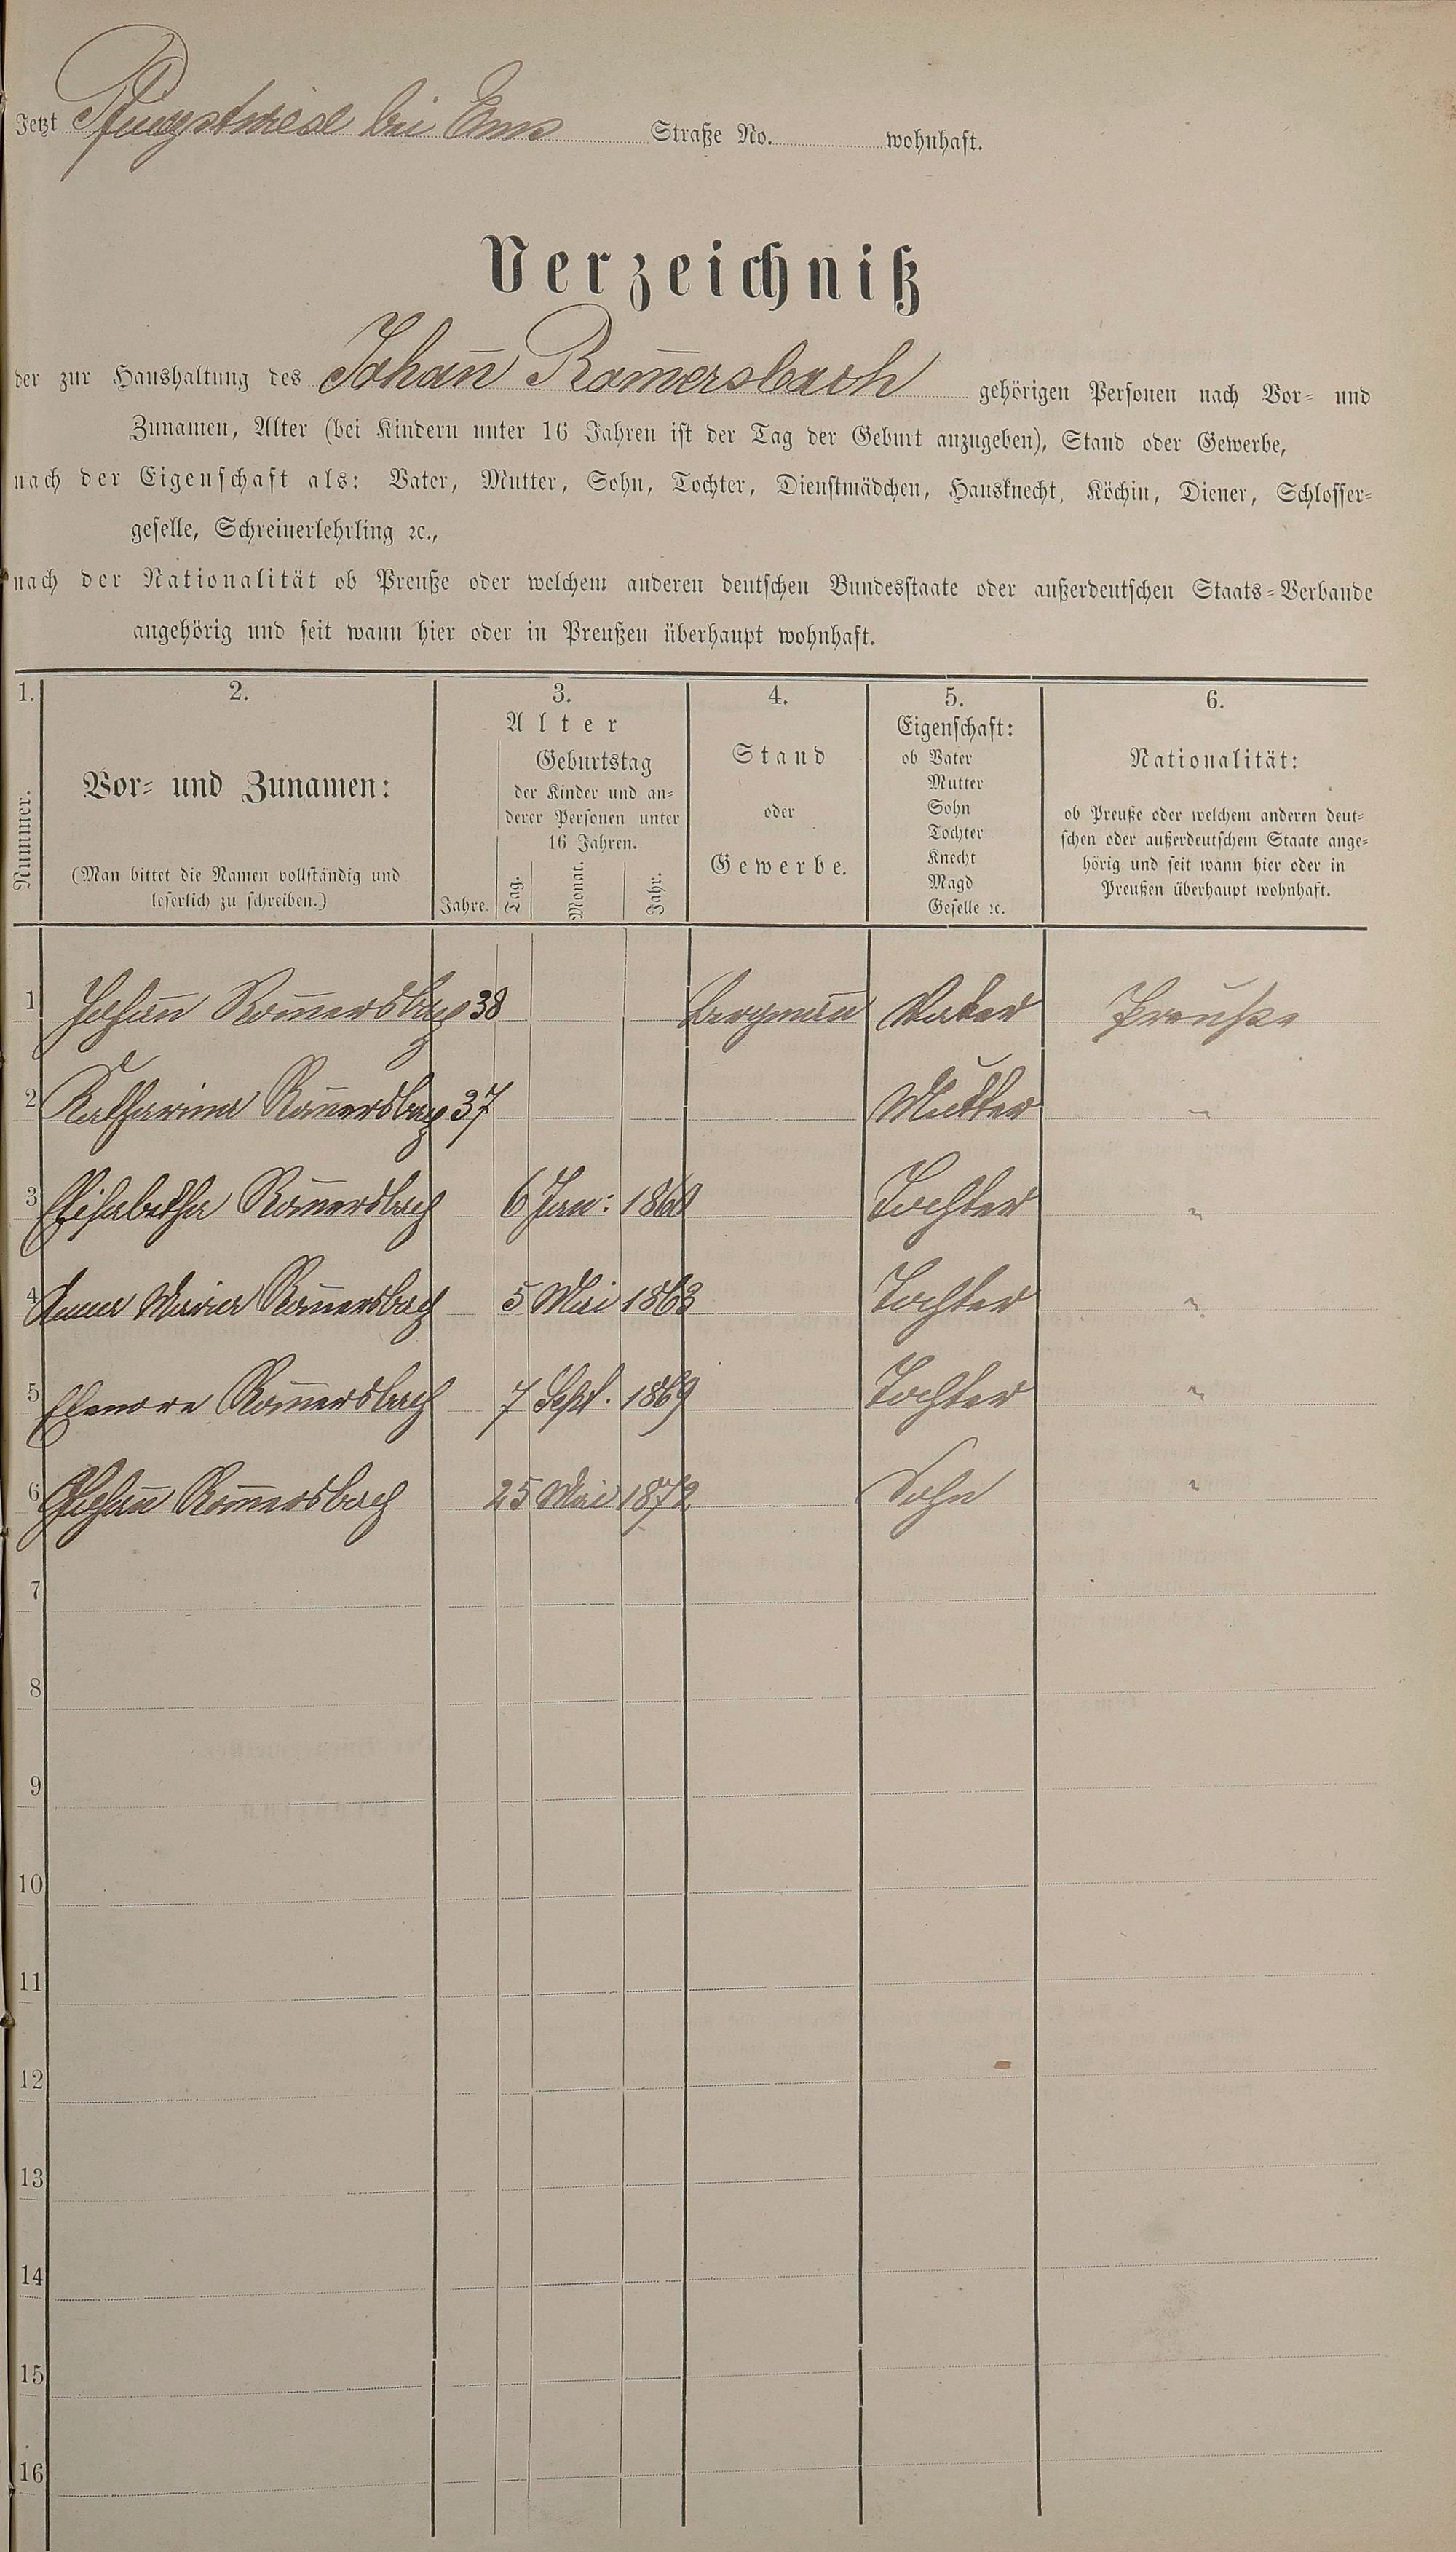 Jetzt Pfingstwiese bei Ems Straße No. wohnhaft.
Verzeichniß
der zur Haushaltung des Johan̄ Rom̄ersbach gehörigen Personen nach Vor- und
Zunamen, Alter (bei Kindern unter 16 Jahren ist der Tag der Geburt anzugeben), Stand oder Gewerbe,
nach der Eigenschaft als: Vater, Mutter, Sohn, Tochter, Dienstmädchen, Hausknecht, Köchin, Diener, Schlosser-
geselle, Schreinerlehrling ꝛc.,
nach der Nationalität ob Preuße oder welchem anderen deutschen Bundesstaate oder außerdeutschen Staats-Verbande
angehörig und seit wann hier oder in Preußen überhaupt wohnhaft.
1. 2. 3. 4. 5. 6.
Nummer.
Vor- und Zunamen:
(Man bittet die Namen vollständig und
leserlich zu schreiben.)
Alter
Jahre.
Geburtstag
der Kinder und an-
derer Personen unter
16 Jahren.
Tag. Monat. Jahr.
Stand
oder
Gewerbe.
Eigenschaft:
ob Vater
Mutter
Sohn
Tochter
Knecht
Magd
Geselle ꝛc.
Nationalität:
ob Preuße oder welchem anderen deut-
schen oder außerdeutschem Staate ange-
hörig und seit wann hier oder in
Preußen überhaupt wohnhaft.
1 Johan̄ Rom̄ersbach 38 Bergman̄ Vater Preuße
2 Katharina Rom̄ersbach 37 Mutter "
3 Elisabetha Rom̄ersbach 6 Jan: Tochter "
4 Anna Maria Rom̄ersbach 5 Mai 1863 Tochter "
5 Elenore Rom̄ersbach 7 Sept. 1869 Tochter "
6 Johan̄ Rom̄ersbach 25 Mai 1872 Sohn "
7
8
9
10
11
12
13
14
15
16